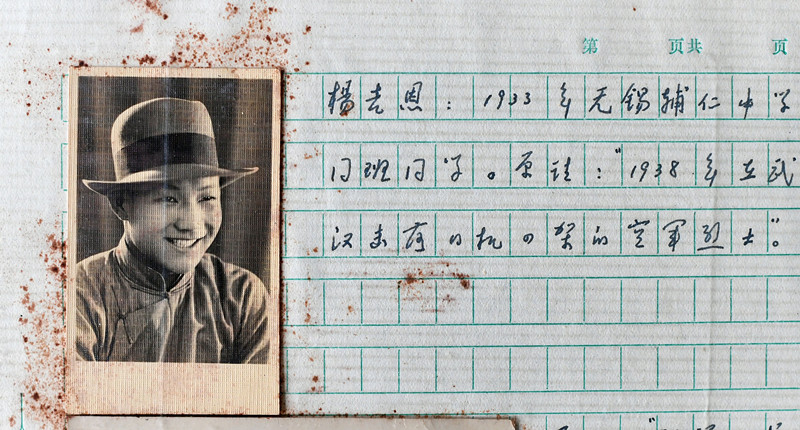 第 页共 页
楊吉恩：1933年无锡辅仁中学
同班同学。原註："1938年在武
汉击落日机四架的空军烈士"。